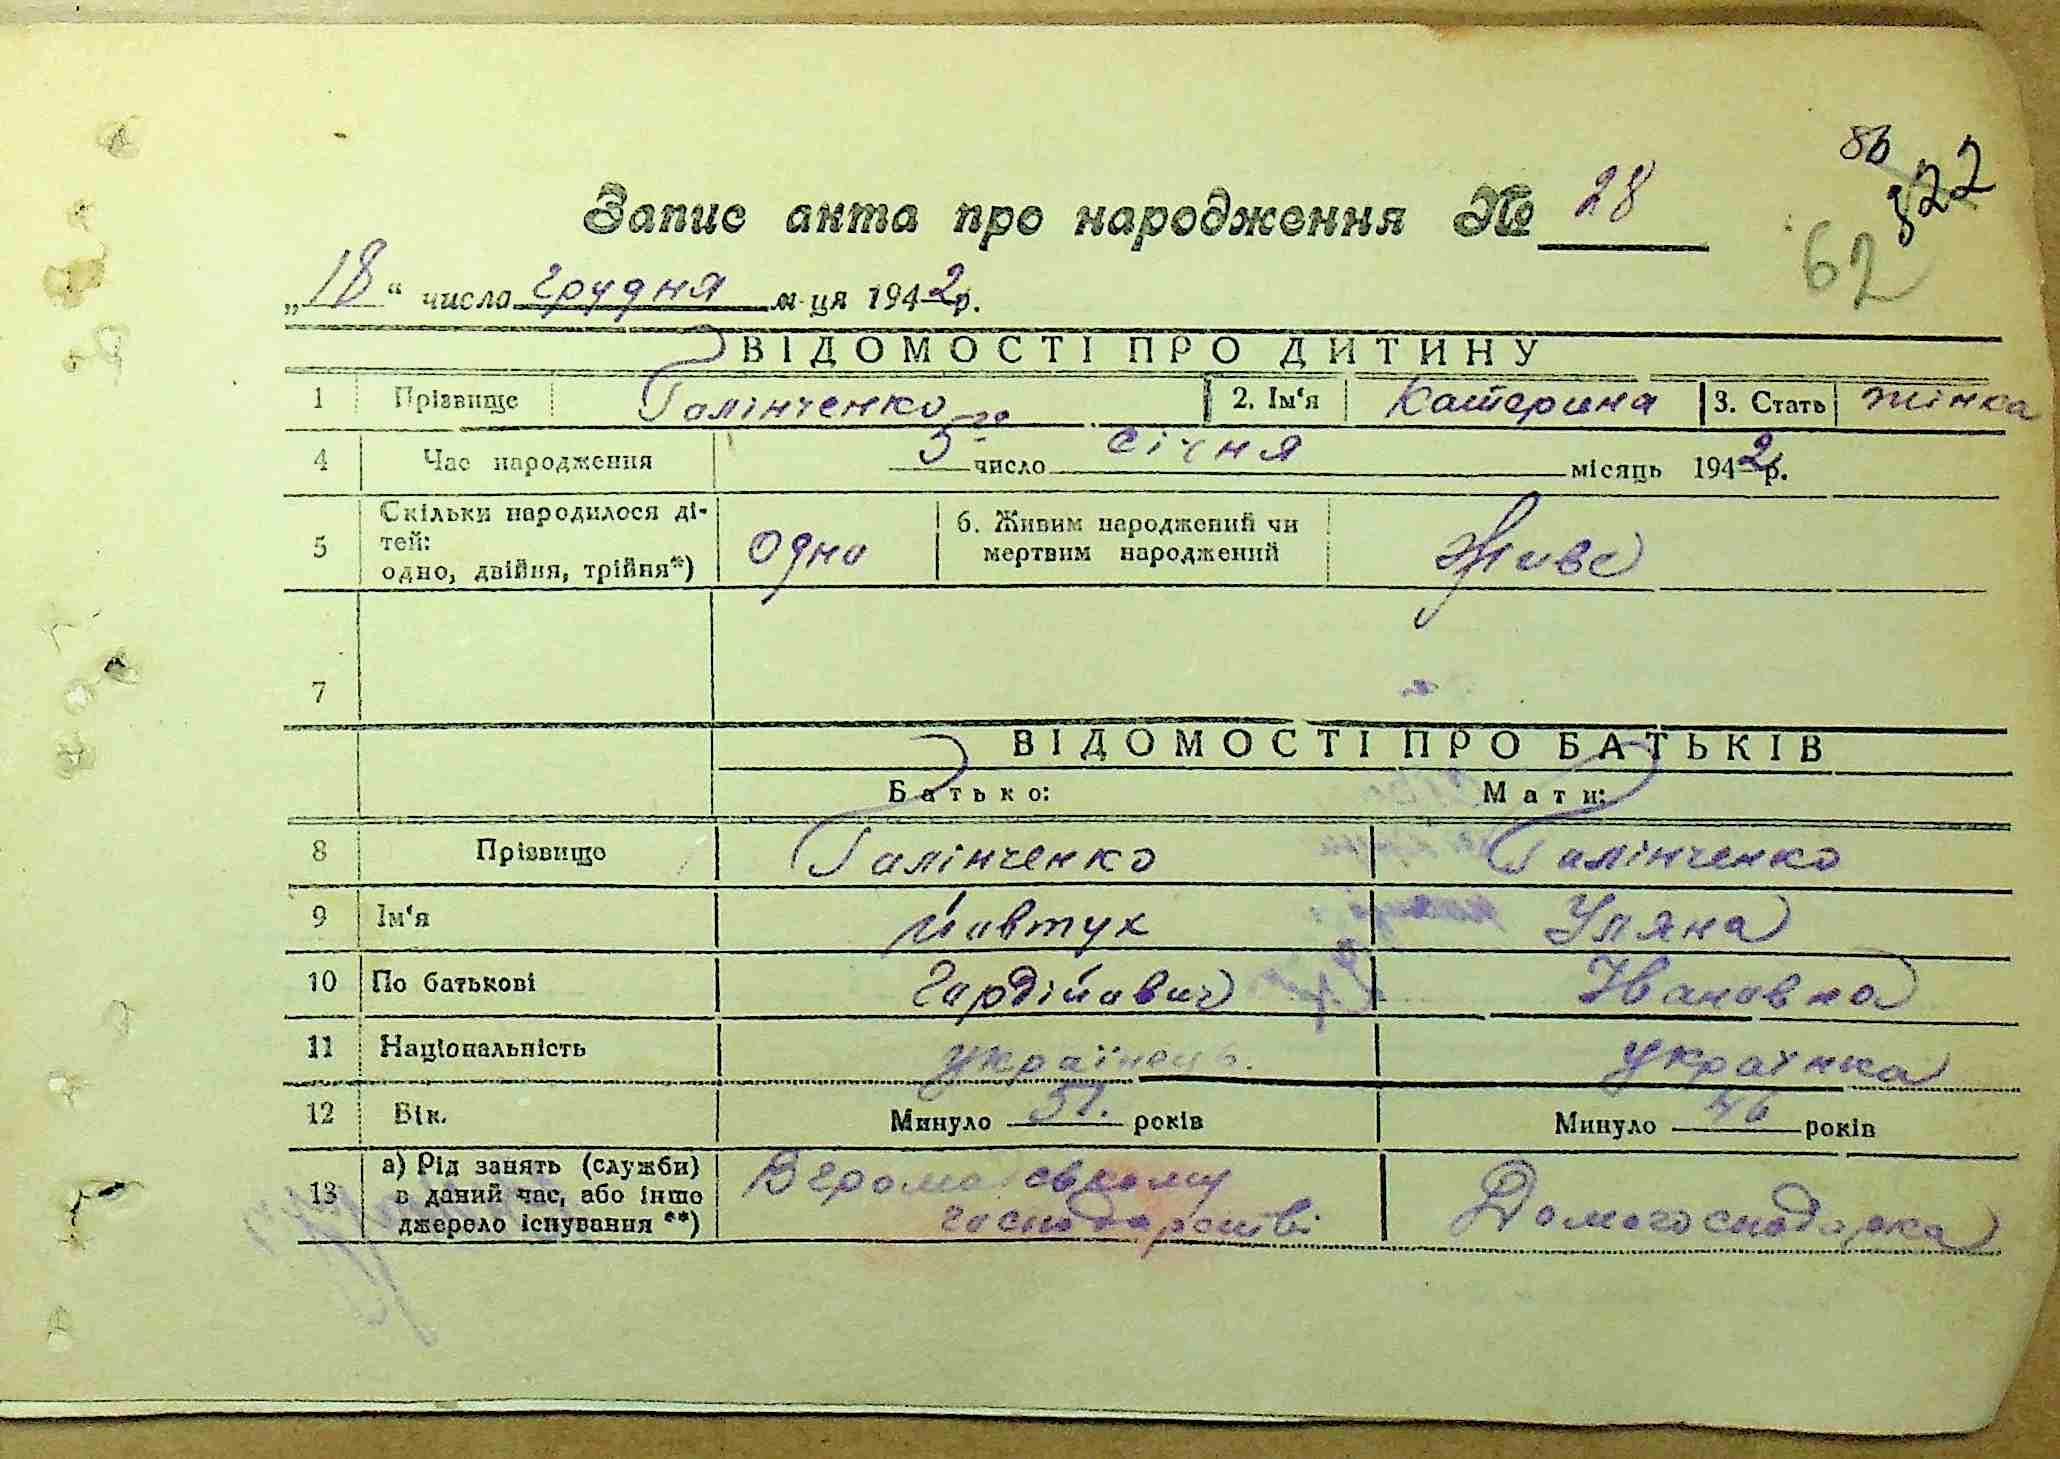 86
822
62
Запис акта про народження № 28
„18“ числа грудня м-ця 1942 р.
ВІДОМОСТІ ПРО ДИТИНУ
1 Прізвище Галінченко 2. Ім‘я Катерина 3. Стать жінка
4 Час народження 5го число січня місяць 1942 р.
5 Скільки народилося ді-
тей:
одно, двійня, трійня*) Одно 6. Живим народжений чи
мертвим народжений Живе
7
ВІДОМОСТІ ПРО БАТЬКІВ
Батько: Мати:
8 Прізвищо Галінченко Галінченко
9 Ім‘я Йавтух Уляна
10 По батькові Гордійович Івановна
11 Національність українець. українка
12 Вік. Минуло 51. років Минуло 46 років
13 а) Рід занять (служби)
в даний час, або інше
джерело існування **) В громадському
господарстві Домогосподарка